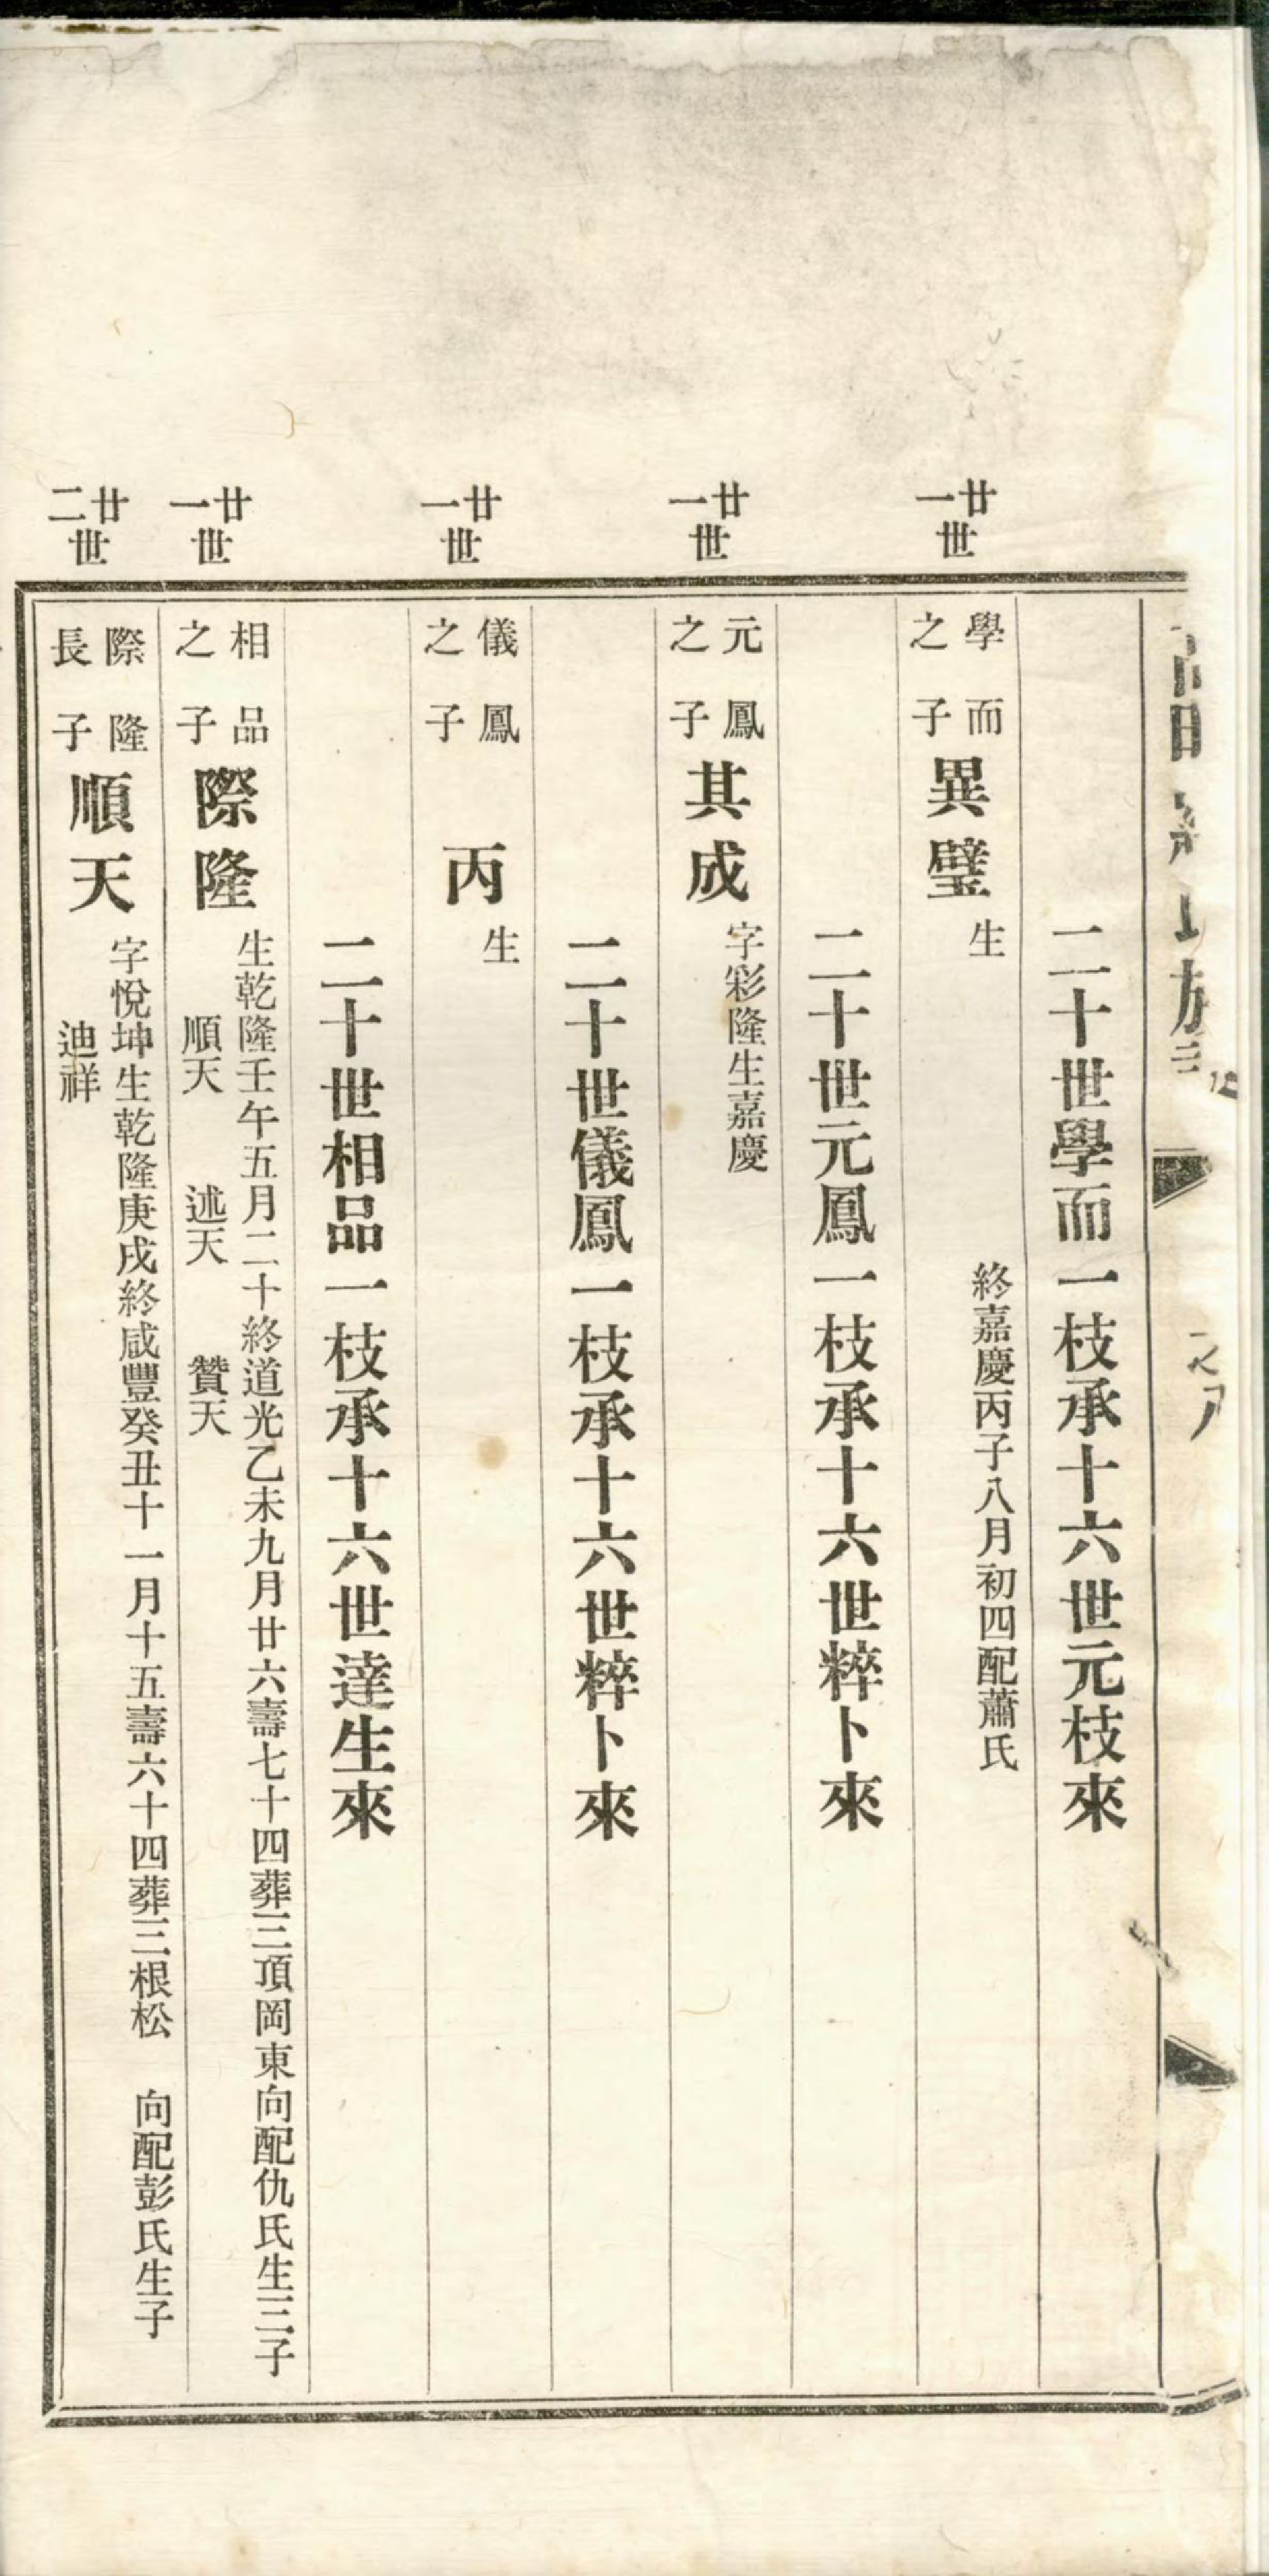 二十世學而一枝承十六世元枝來
廿一世
學而之子
異璧
生
終嘉慶丙子八月初四配蕭氏
二十世元鳳一枝承十六世粹卜來
廿一世
元鳳之子
其成
字彩隆生嘉慶
二十世儀鳳一枝承十六世粹卜來
廿一世
儀鳳之子
丙
生
二十世相品一枝承十六世達生來
廿一世
相品之子
際隆
生乾隆壬午五月二十終道光乙未九月廿六壽七十四葬三頂岡東向配仇氏生三子
順天 述天 贊天
廿二世
際隆長子
順天
字悅坤生乾隆庚戌終咸豐癸丑十一月十五壽六十四葬三根松 向配彭氏生子
迪祥